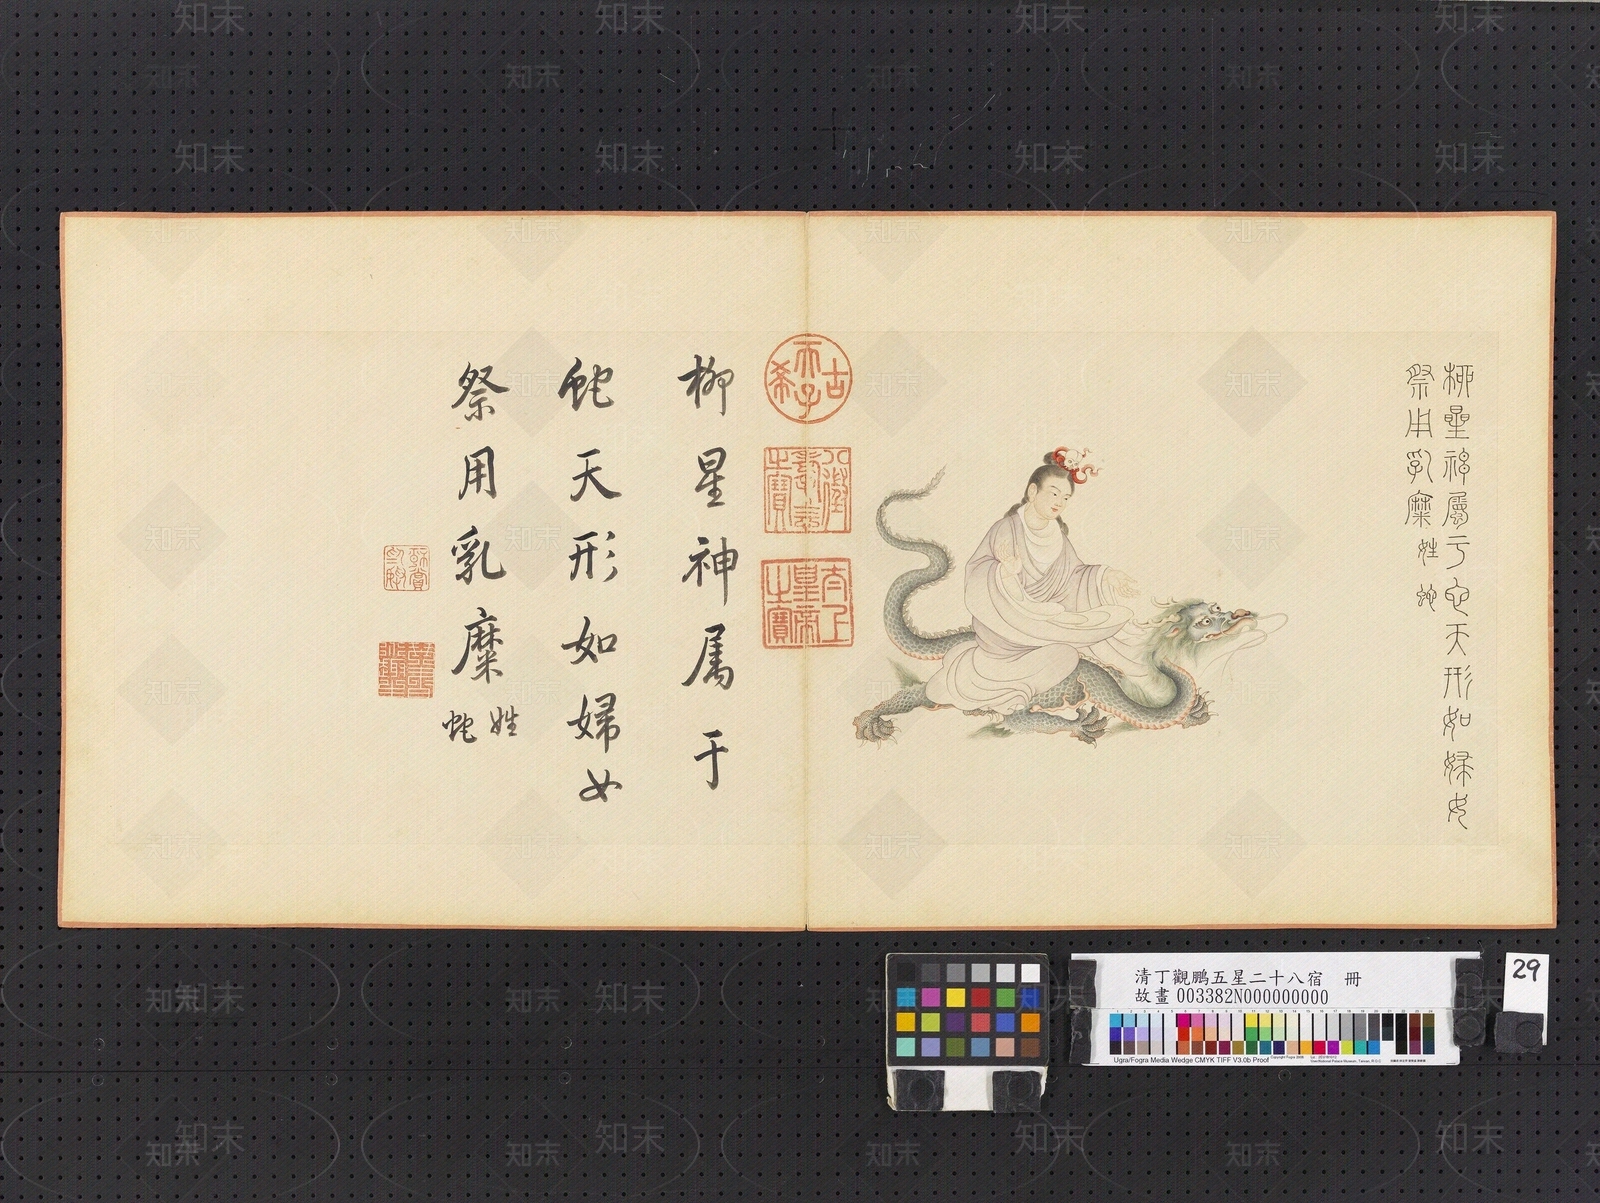 柳星神屬于它天形如婦女
祭用乳糜姓蛇
古希天子
八徵耄念之寶
太上皇帝之寶
柳星神属于
蛇天形如婦女
祭用乳糜姓蛇
清丁觀鵬五星二十八宿 冊
故畫003382N000000000
Ugra/Fogra Media Wedge CMYK TIFF V3.0b Proof
29
知末